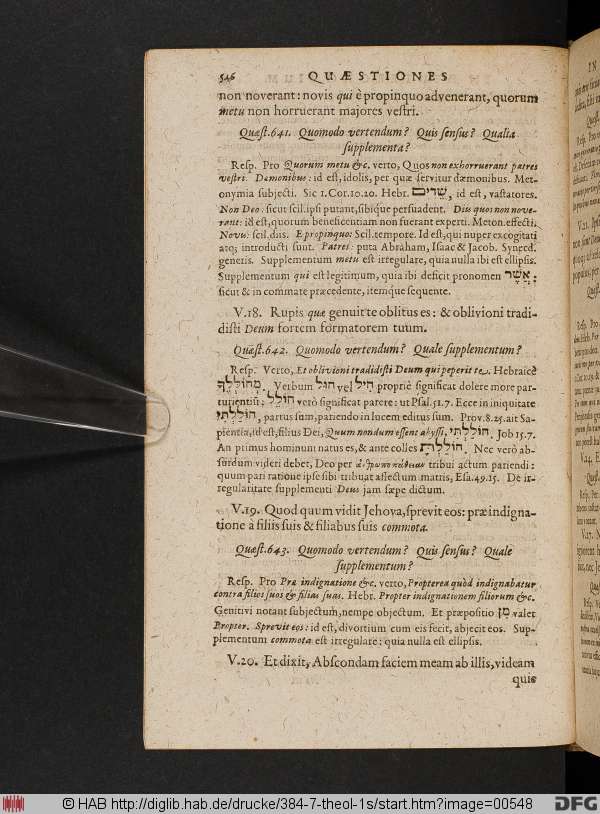 546 QUÆSTIONES
non noverant: novis qui è propinquo advenerant, quorum
metu non horruerant majores vestri.
Quæst.641. Quomodo vertendum? Quis sensus? Qualia
supplementa?
Resp. Pro Quorum metu &c. verto, Quos non exhorruerant patres
vestri. Dæmonibus: id est, idolis, per quæ servitur dæmonibus. Met-
onymia subjecti. Sic 1.Cor.10.20. Hebr. שֵׁדִים, id est, vastatores.
Non Deo: sicut scil. ipsi putant, sibique persuadent. Diis quos non nove-
rant: id est, quorum beneficentiam non fuerant experti. Meton. effecti.
Novis: scil. diis. E propinquo: Scil. tempore. Id est, qui nuper excogitati
atq; introducti sunt. Patres: puta Abraham, Isaac & Jacob. Synecd.
generis. Supplementum metu est irregulare, quia nulla ibi est ellipsis.
Supplementum qui est legitimum, quia ibi deficit pronomen אֲשֶׁר;
sicut & in commate præcedente, itemque sequente.
V.18. Rupis quæ genuit te oblitus es: & oblivioni tradi-
disti Deum fortem formatorem tuum.
Quæst.642. Quomodo vertendum? Quale supplementum?
Resp. Verto, Et oblivioni tradidisti Deum qui peperit te. Hebraicè
מְחוֹלְלֶךָ. Verbum חוּל vel חִיל propriè significat dolere more par-
turientis: חוֹלֵל verò significat parere: ut Psal.51.7. Ecce in iniquitate
חוֹלָלְתִּי, partus sum, pariendo in lucem editus sum. Prov.8.25. ait Sa-
pientia, id est, filius Dei, Quum nondum essent abyssi, חוֹלָלְתִּי. Job 15.7.
An primus hominum natus es, & ante colles חוֹלָלְתָּ. Nec verò ab-
surdum videri debet, Deo per ἀνθρωποπάθειαν tribui actum pariendi:
quum pari ratione ipse sibi tribuat affectum matris, Esa.49.15. De ir-
regularitate supplementi Deus jam sæpe dictum.
V.19. Quod quum vidit Jehova, sprevit eos: præ indigna-
tione à filiis suis & filiabus suis commota.
Quæst.643. Quomodo vertendum? Quis sensus? Quale
supplementum?
Resp. Pro Præ indignatione &c. verto, Propterea quòd indignabatur
contra filios suos & filias suas. Hebr. Propter indignationem filiorum &c.
Genitivi notant subjectum, nempe objectum. Et præpositio מִן valet
Propter. Sprevit eos: id est, divortium cum eis fecit, abjecit eos. Sup-
plementum commota est irregulare: quia nulla est ellipsis.
V.20. Et dixit, Abscondam faciem meam ab illis, videam
quis
© HAB http://diglib.hab.de/drucke/384-7-theol-1s/start.htm?image=00548
DFG